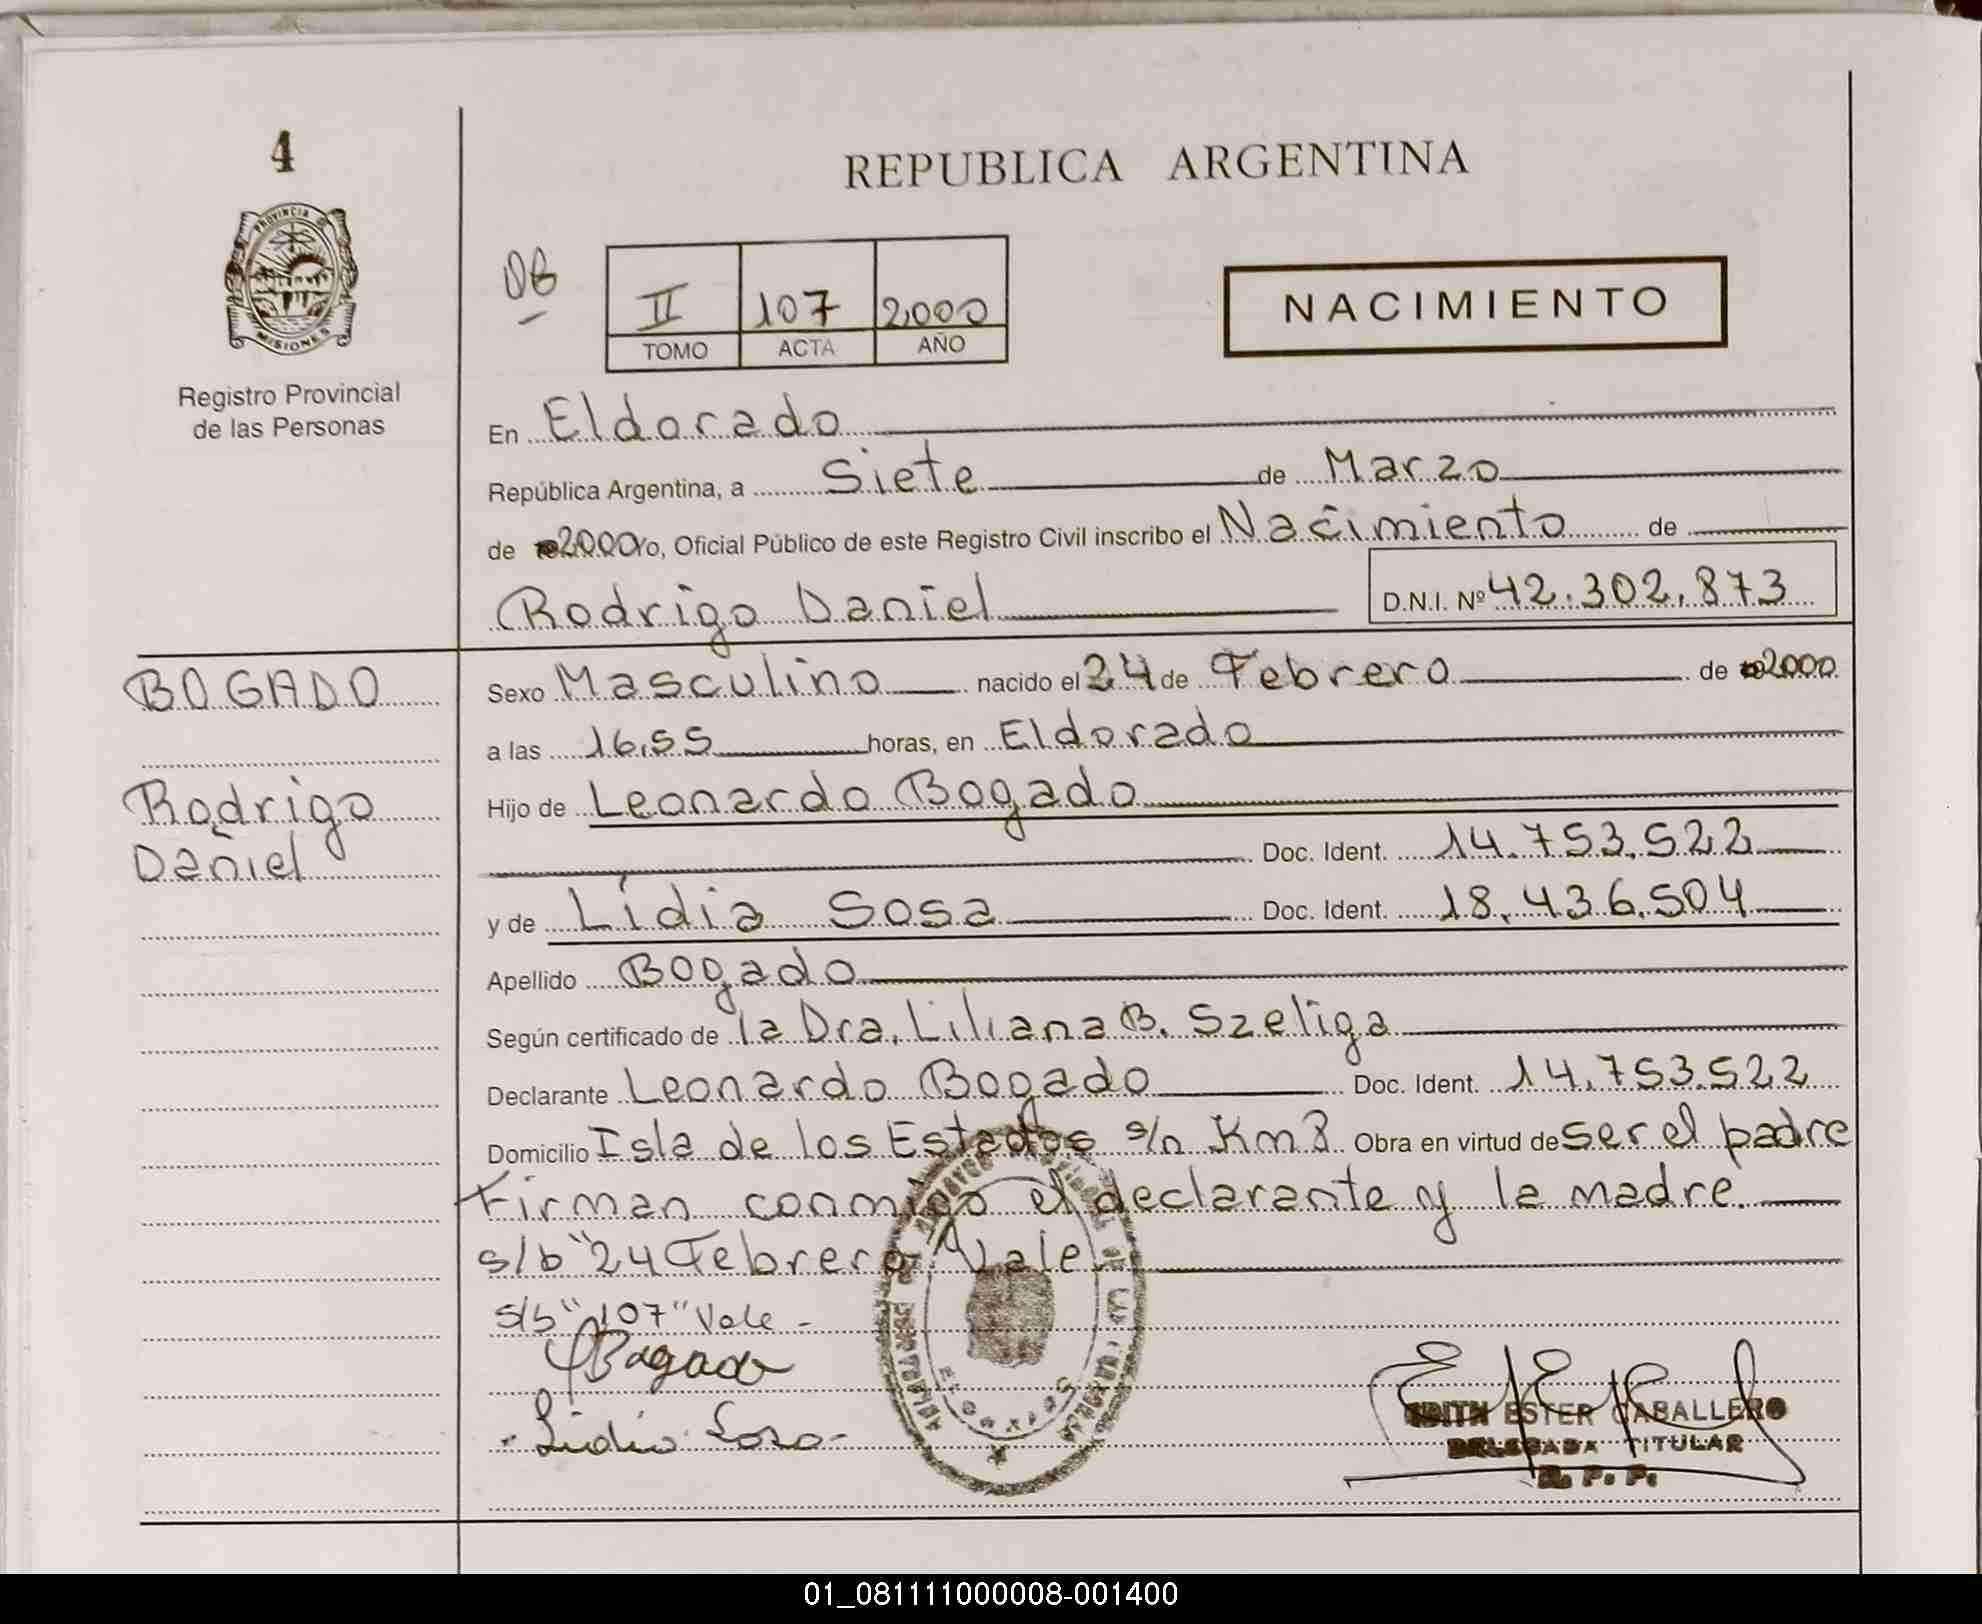 4
PROVINCIA DE
MISIONES
Registro Provincial
de las Personas
REPUBLICA ARGENTINA
II 107 2000
TOMO ACTA AÑO
NACIMIENTO
En Eldorado
República Argentina, a Siete de Marzo
de 2000 yo, Oficial Público de este Registro Civil inscribo el Nacimiento de
Rodrigo Daniel D.N.I. Nº 42.302.873
BOGADO
Rodrigo
Daniel
Sexo Masculino nacido el 24 de Febrero de 2000
a las 16,55 horas, en Eldorado
Hijo de Leonardo Bogado
Doc. Ident. 14.753.522
y de Lidia Sosa Doc. Ident. 18.436.504
Apellido Bogado
Según certificado de la Dra. Liliana B. Szeliga
Declarante Leonardo Bogado Doc. Ident. 14.753.522
Domicilio Isla de los Estados s/n Km 3 Obra en virtud de ser el padre
Firman conmigo el declarante y la madre.
s/b "24 Febrero" Vale
s/b "107" Vale -
Bogado
Lidia Sosa
EDITH ESTER CABALLERO
DELEGADA TITULAR
R. P. P.
01_081111000008-001400